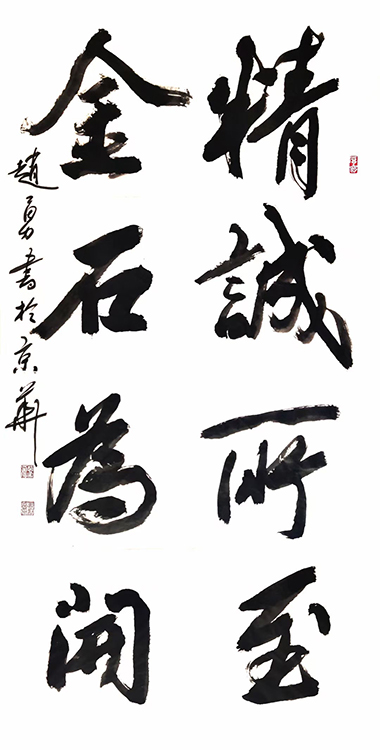 精誠所至
金石為開
趙勇書於京華